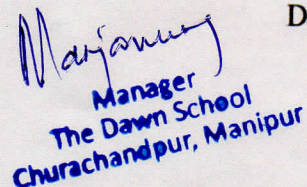 D
Manager
The Dawn School
Churachandpur, Manipur